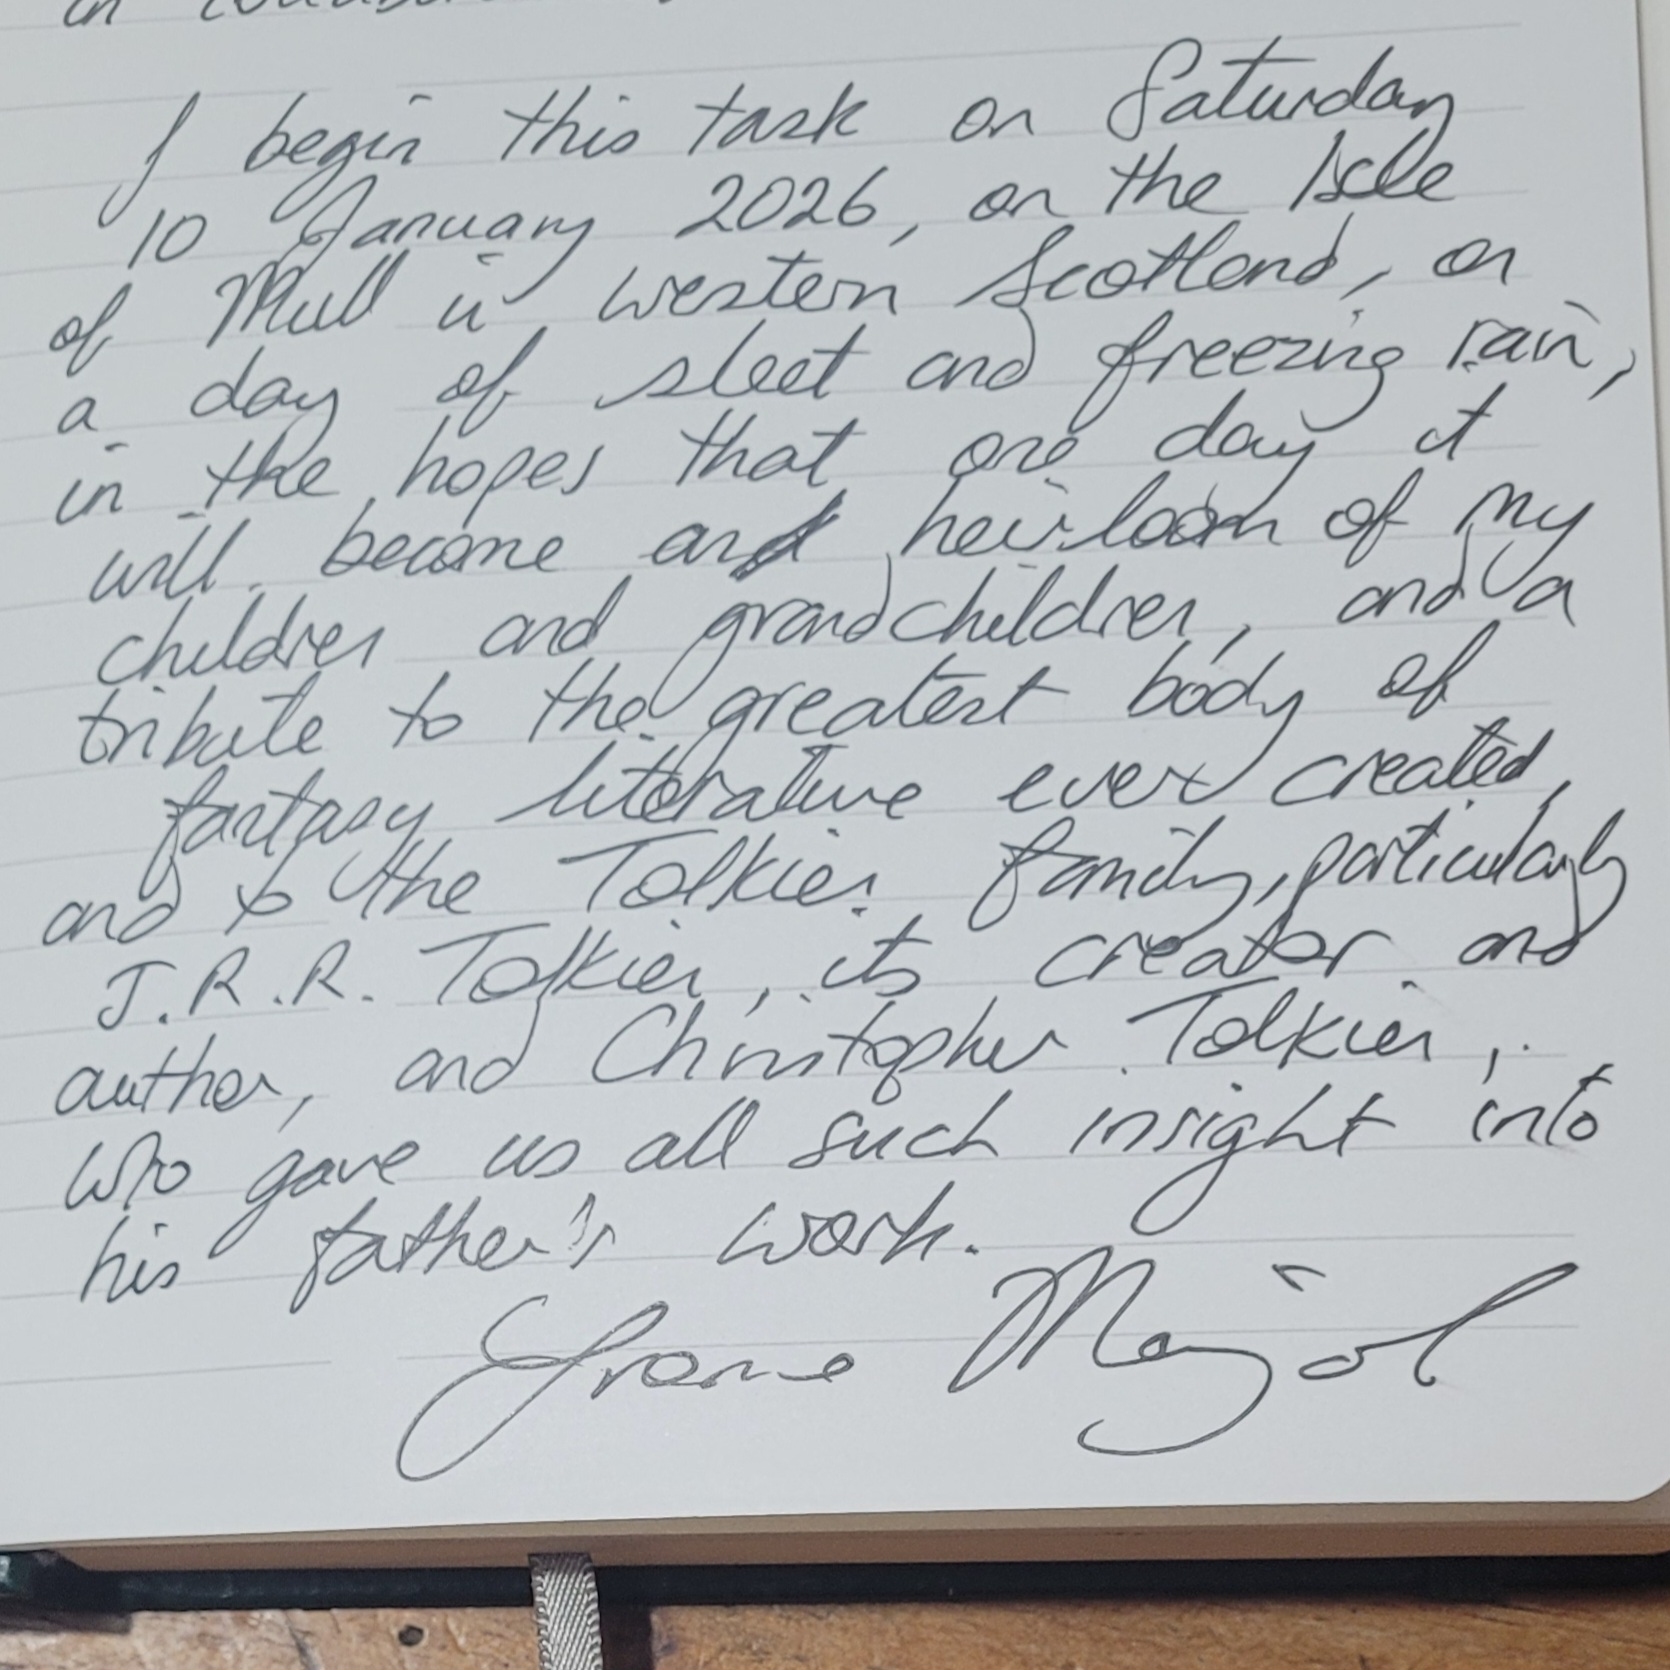 in
I begin this task on Saturday
10 January 2026, on the Isle
of Mull in western Scotland, on
a day of sleet and freezing rain,
in the hopes that one day it
will become an heirloom of my
children and grandchildren, and a
tribute to the greatest body of
fantasy literature ever created,
and to the Tolkien family, particularly
J.R.R. Tolkien, its creator and
author, and Christopher Tolkien,
who gave us all such insight into
his father's work.